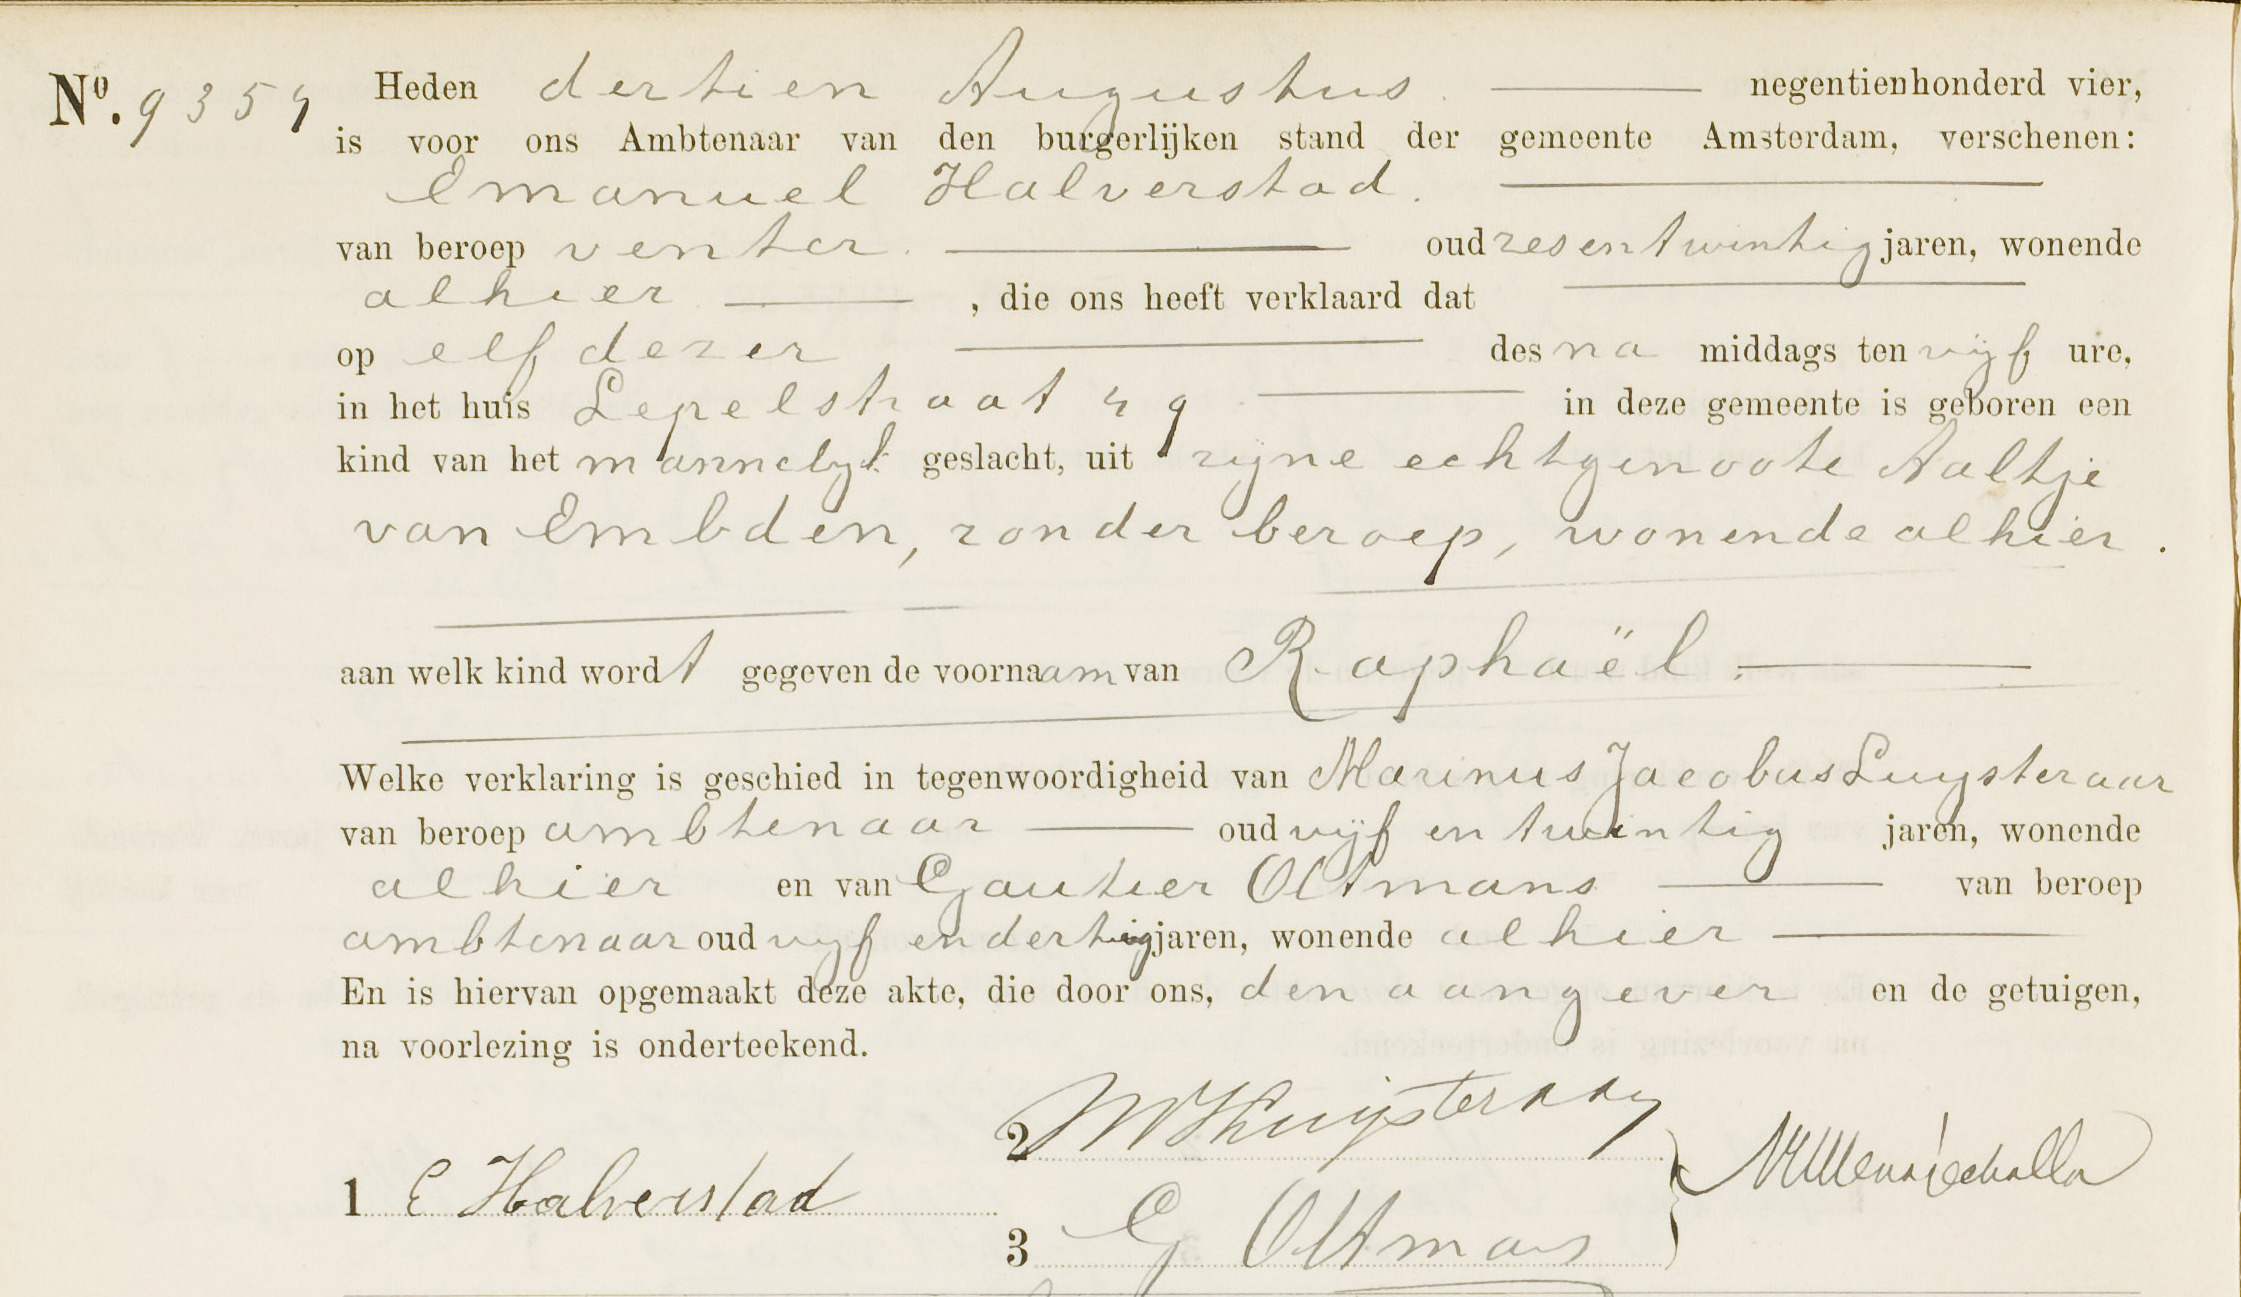 No. 9354 Heden dertien Augustus negentienhonderd vier,
is voor ons Ambtenaar van den burgerlijken stand der gemeente Amsterdam, verschenen:
Emanuel Halverstad.
van beroep venter. oud zesentwintig jaren, wonende
alhier , die ons heeft verklaard dat
op elf dezer des na middags ten vijf ure,
in het huis Lepelstraat 49 in deze gemeente is geboren een
kind van het mannelijk geslacht, uit zijne echtgenoote Aaltje
van Embden, zonder beroep, wonende alhier.
aan welk kind wordt gegeven de voornaam van Raphaël.
Welke verklaring is geschied in tegenwoordigheid van Marinus Jacobus Luijsteraar
van beroep ambtenaar oud vijf en twintig jaren, wonende
alhier en van Gautier Oltmans van beroep
ambtenaar oud vijf en dertig jaren, wonende alhier
En is hiervan opgemaakt deze akte, die door ons, den aangever en de getuigen,
na voorlezing is onderteekend.
2 MJLuijsteraar
1 E Halverstad
3 G Oltmans